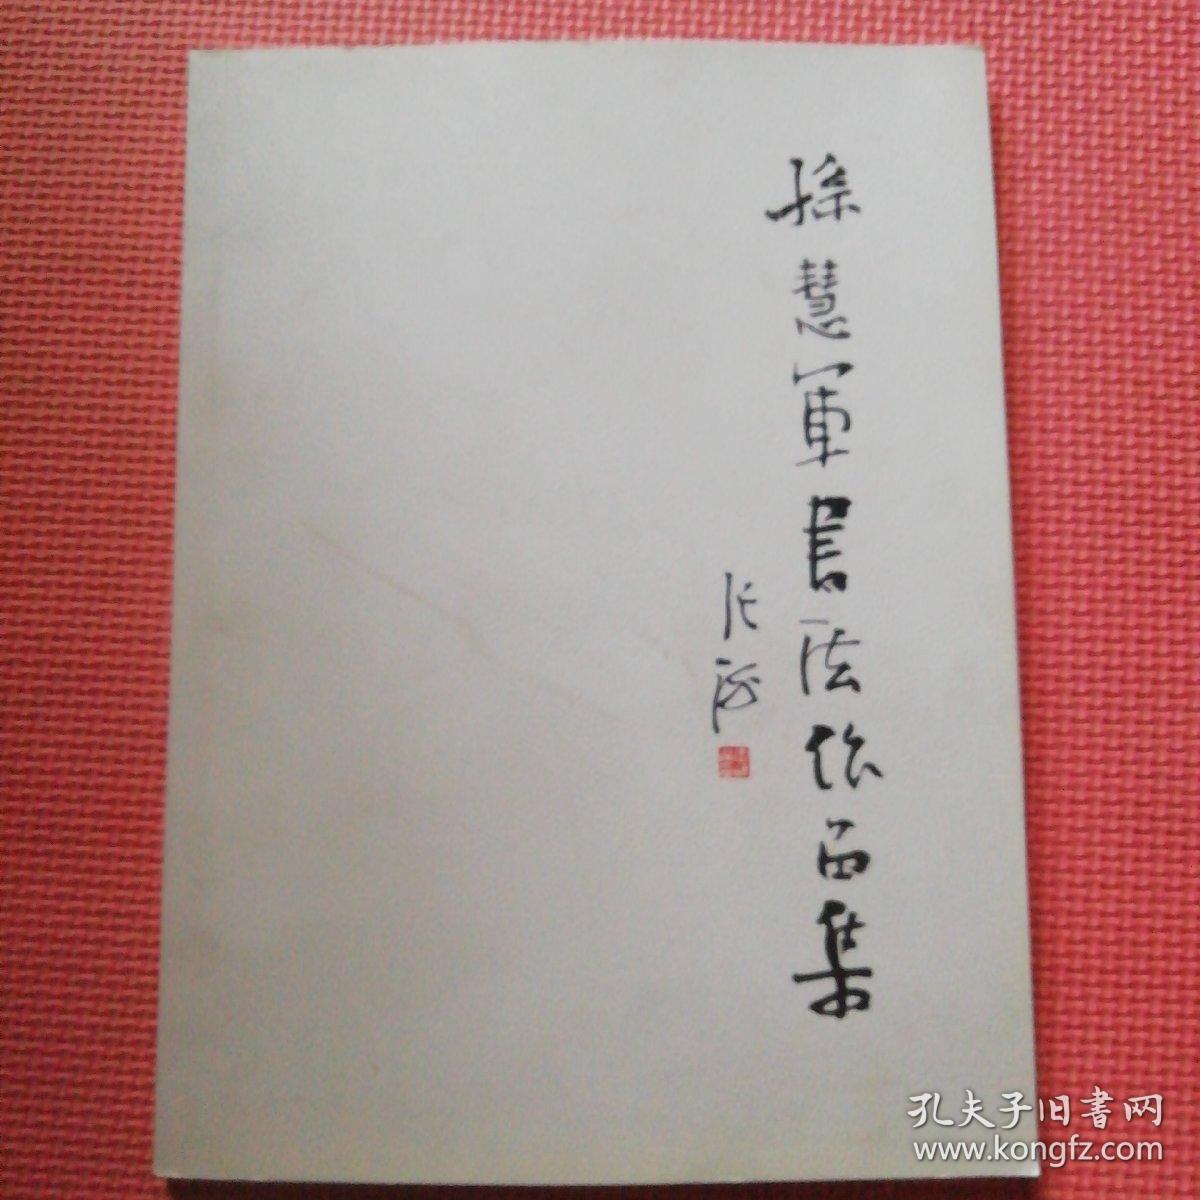 孫慧軍書法作品集
张海
孔夫子旧書网
www.kongfz.com